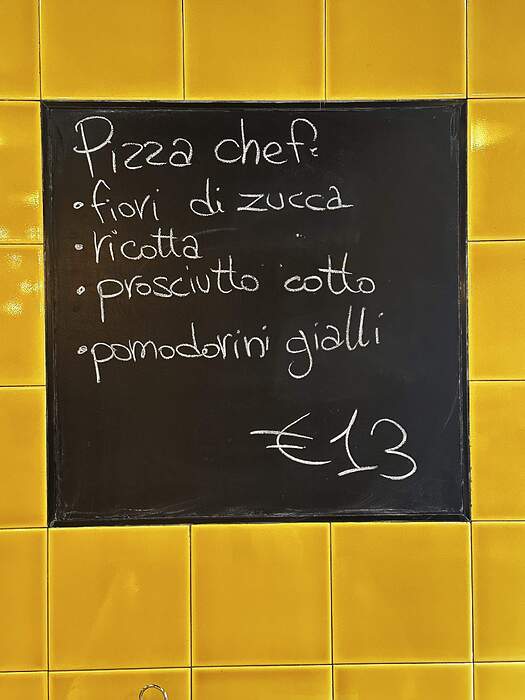 Pizza chef:
• fiori di zucca
• ricotta
• prosciutto cotto
• pomodorini gialli
€13